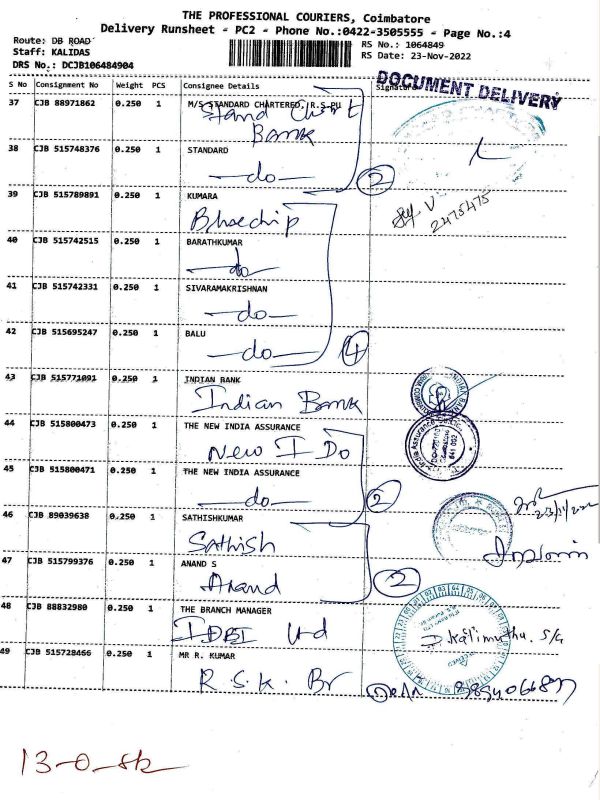 THE PROFESSIONAL COURIERS, Coimbatore
Delivery Runsheet - PC2 - Phone No.:0422-3505555 - Page No.:4
Route: DB ROAD
RS No.: 1064849
Staff: KALIDAS
RS Date: 23-Nov-2022
DRS No.: DCJB106484904
S No Consignment No Weight PCS Consignee Details Signature
DOCUMENT DELIVERY
37 CJB 88971862 0.250 1 M/S STANDARD CHARTERED, R.S.PU
Stand Chart
Bank
38 CJB 515748376 0.250 1 STANDARD
-do- 2
39 CJB 515789891 0.250 1 KUMARA
2475475
40 CJB 515742515 0.250 1 BARATHKUMAR
-do-
41 CJB 515742331 0.250 1 SIVARAMAKRISHNAN
-do-
42 CJB 515695247 0.250 1 BALU
-do- 4
43 CJB 515771091 0.250 1 INDIAN BANK
Indian Bank
44 CJB 515800473 0.250 1 THE NEW INDIA ASSURANCE
New I Do
45 CJB 515800471 0.250 1 THE NEW INDIA ASSURANCE
-do- 2
46 CJB 89039638 0.250 1 SATHISHKUMAR
Sathish
47 CJB 515799376 0.250 1 ANAND S
Anand 2
48 CJB 88832980 0.250 1 THE BRANCH MANAGER
IDBI Ltd
D. Kalimuthu. S/G
49 CJB 515728466 0.250 1 MR R. KUMAR
R.S.K. Br
13-0-sk